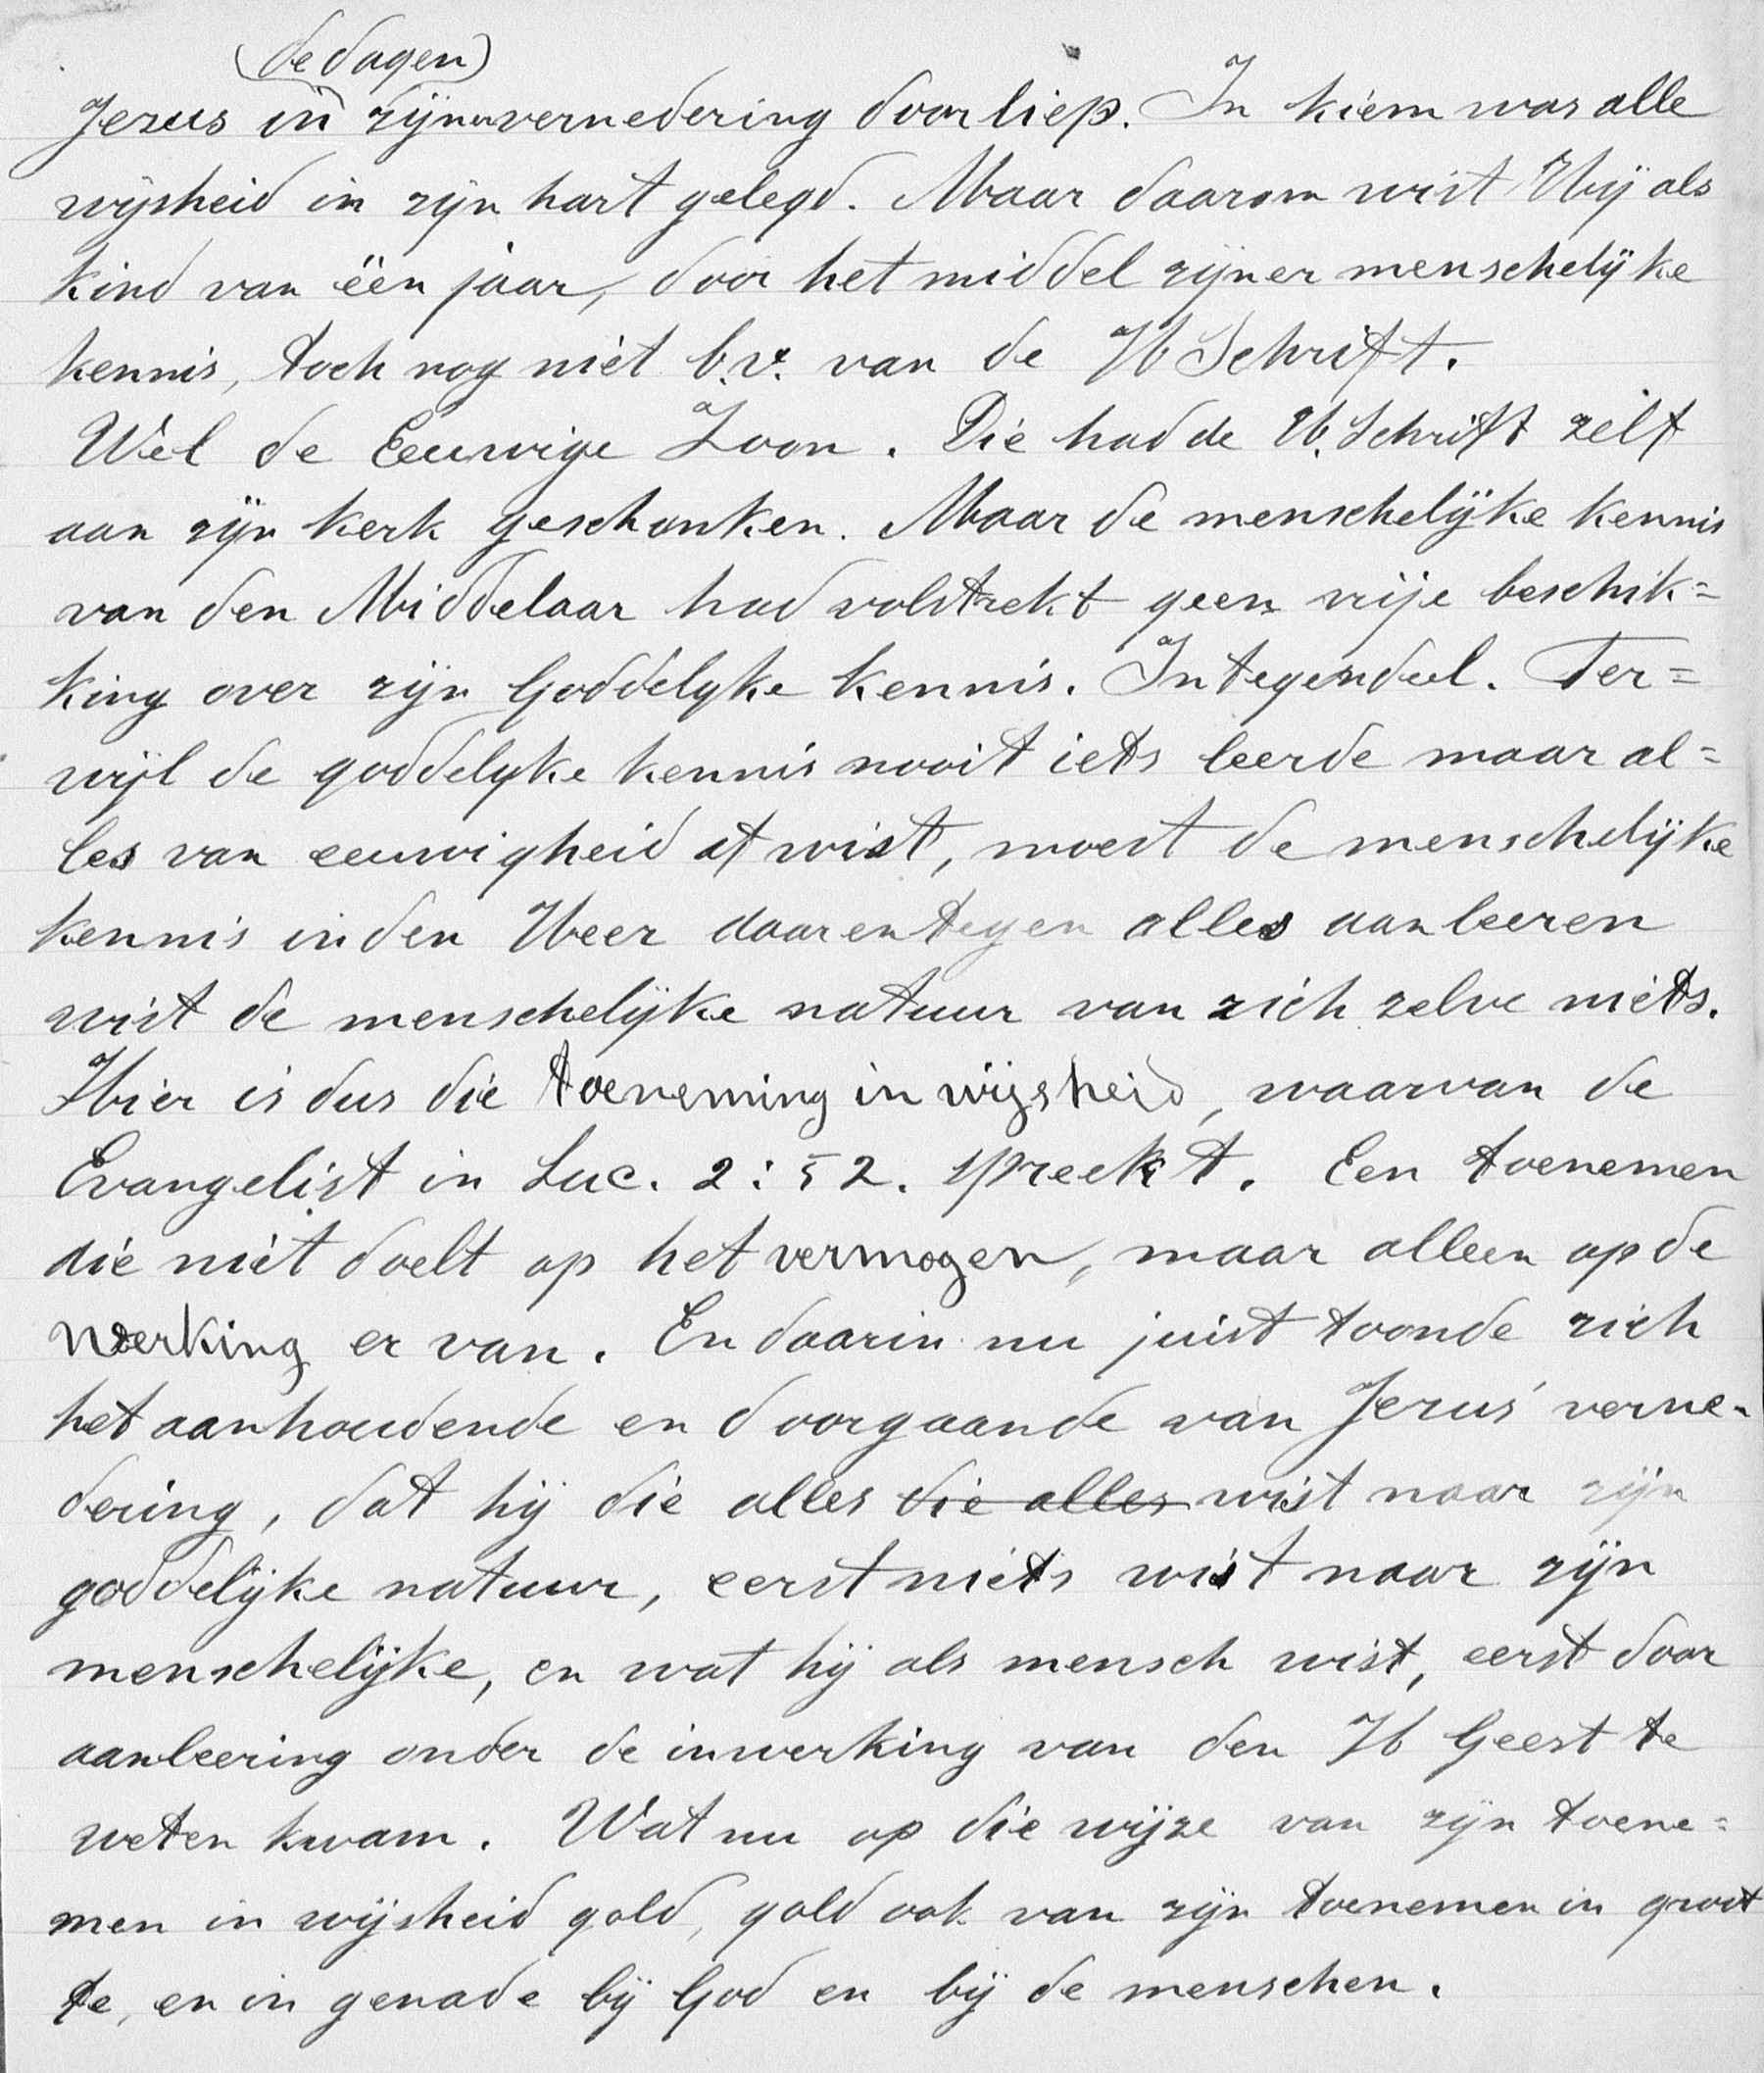 (de dagen)
Jezus in zijner vernedering doorliep. In kiem was alle
wijsheid in zijn hart gelegd. Maar daarom wist Hij als
kind van één jaar, door het middel zijner menschelijke
kennis, toch nog niet b.v. van de H Schrift.
Wel de Eeuwige Zoon. Die had de H. Schrift zelf
aan zijn kerk geschonken. Maar de menschelijke kennis
van den Middelaar had volstrekt geen vrije beschik=
king over zijn Goddelyke kennis. Integendeel. Ter=
wijl de goddelyke kennis nooit iets leerde maar al=
les van eeuwigheid af wist, moest de menschelijke
kennis in den Heer daarentegen alles aanleeren
wist de menschelijke natuur van zich zelve niets.
Hier is dus die toeneming in wijsheid, waarvan de
Evangelist in Luc. 2:52. spreekt. Een toenemen
die niet doelt op het vermogen, maar alleen op de
werking er van. En daarin nu juist toonde zich
het aanhoudende en doorgaande van Jezus' verne-
dering, dat hij die alles die alles wist naar zijn
goddelijke natuur, eerst niets wist naar zijn
menschelijke, en wat hij als mensch wist, eerst door
aanleering onder de inwerking van den H Geest te
weten kwam. Wat nu op die wijze van zijn toene=
men in wijsheid gold, gold ook van zijn toenemen in groot
te, en in genade bij God en bij de menschen.